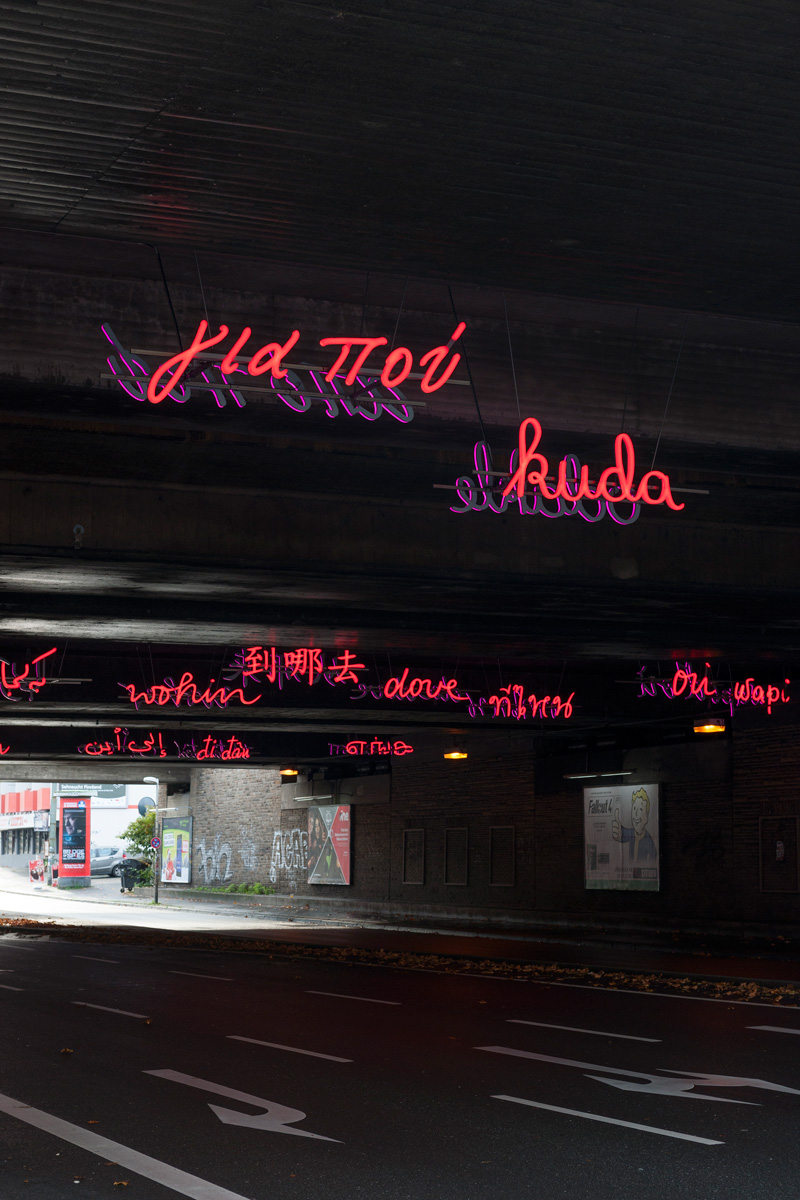 για πού
kuda
wohin
到哪去
dove
ที่ไหน
ori
wapi
إلى أين
đi đâu
Fallout 4